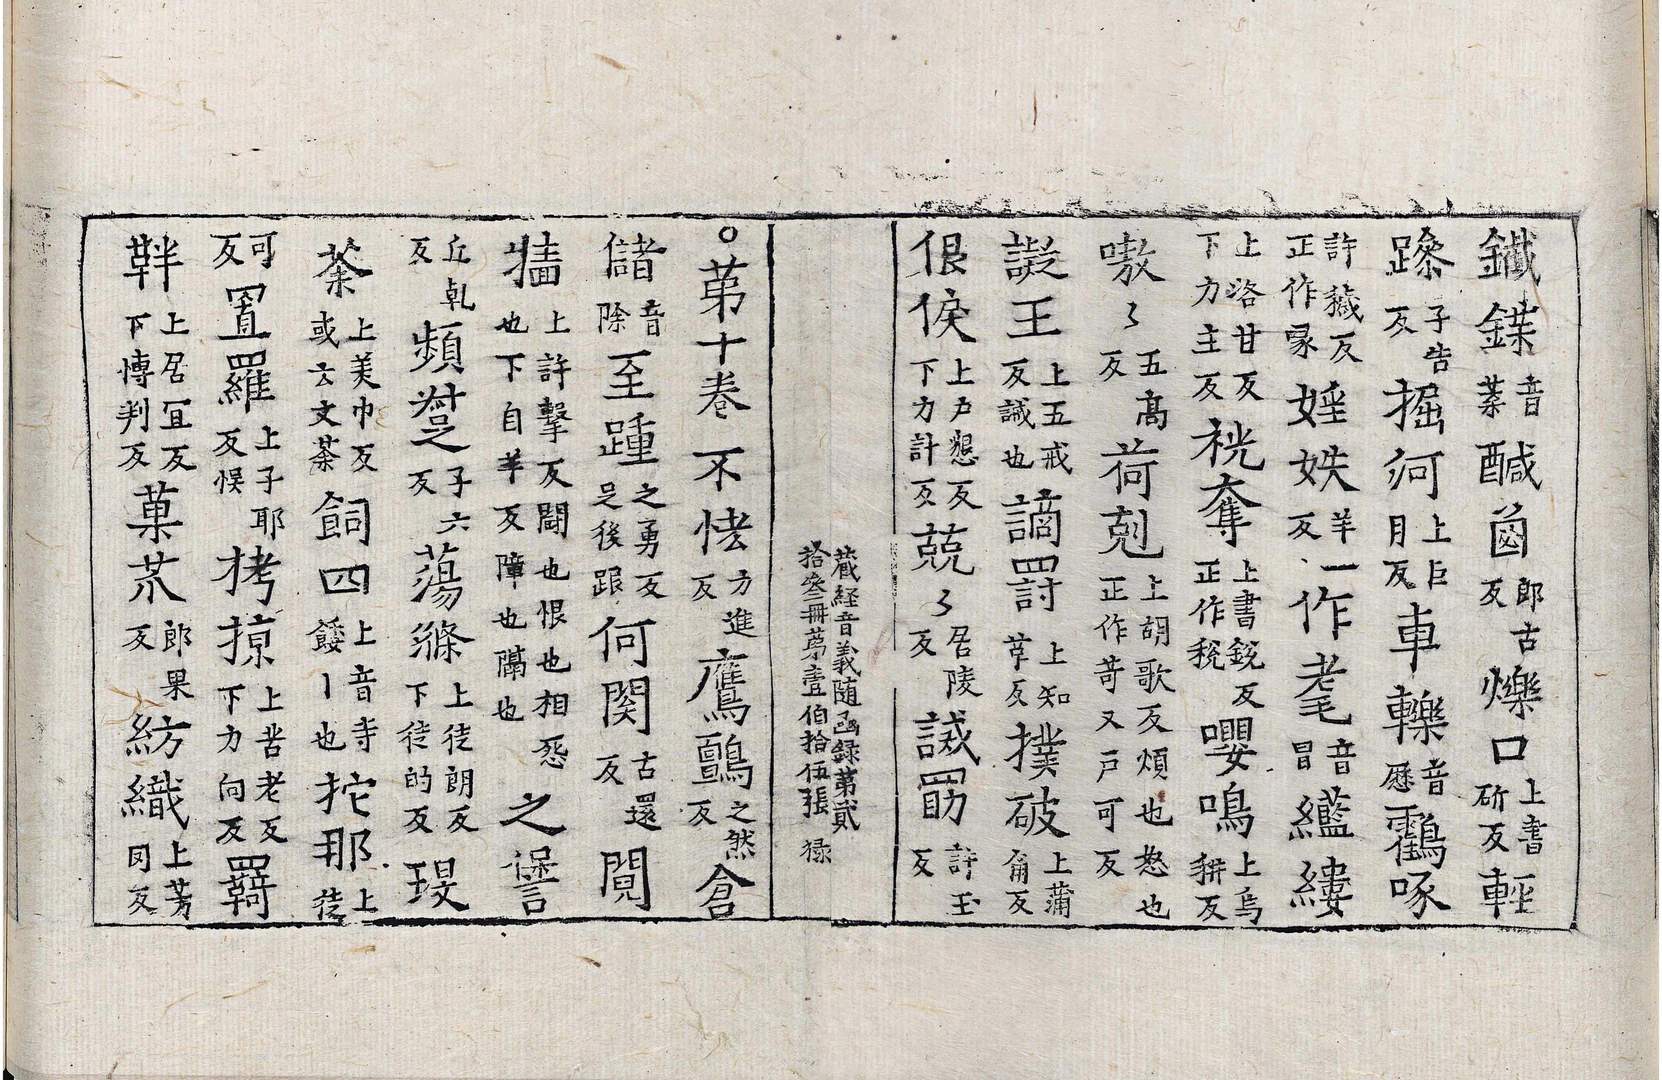 鐵鍱葉音醎鹵郎古反爍口上書斫反輕
躁子告反掘河上巨月反車轢音歷鸖啄
許穢反正作喙婬妷羊一反作耄音冒繿縷
上洛甘反下力主反裞奪上書銳反正作稅嚶鳴上烏耕反
嗷〻五高反荷剋上胡歌反煩也怒也正作苛又戸可反
譺王上五戒反誡也謫罸上知革反撲破上蒲角反
佷戾上戶懇反下力計反兢〻居陵反誡勗許玉反
藏経音義随函録第貳拾叄冊苐壹伯拾伍張 禄
○苐十卷不恡力進反鷹鸇之然反倉
儲音除至踵之勇反足後跟何関古還反鬩
牆上許擊反鬪也恨也相怨也下自羊反障也隔也之譽
丘乹反頻蹙子六反蕩滌上徒朗反下徒的反瑕
荼上美巾反或云文荼飼四上音寺餧丨也拕那上徒
可反罝羅上子耶反悞拷掠上苦老反下力向反羇
靽上居宜反下博判反菓苽郎果反紡織上芳冈反